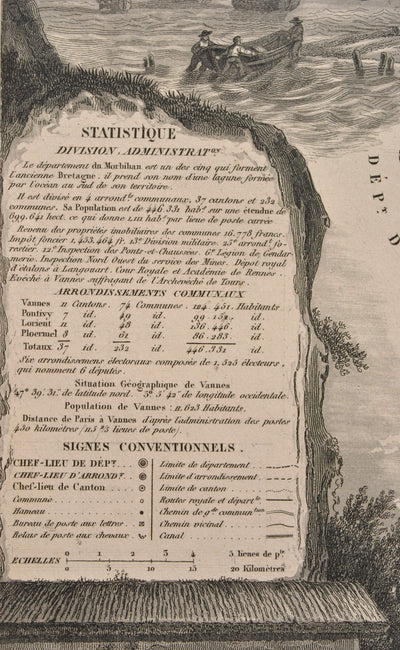 STATISTIQUE
DIVISION ADMINISTRAT.on
Le département du Morbihan est un des cinq qui forment
l'ancienne Bretagne. il prend son nom d'une lagune formée
par l'océan au sud de son territoire.
Il est divisé en 4 arrondts communaux, 37 cantons et 232
communes. Sa Population est de 446.331 habts sur une étendue de
699.641 hect. ce qui donne 1.111 habts par lieue de poste carrée
Revenu des propriétés imobilières des communes 16.778 francs.
Impôt foncier 1.453.464 fr. 13e Division militaire. 25e arrondt fo-
restier. 12e Inspection des Ponts-et-Chaussées. 6e Légion de Gendar-
merie. Inspection Nord Ouest du service des Mines. Dépôt royal
d'étalons à Langonnet. Cour Royale et Académie de Rennes.
Evêché à Vannes suffragant de l'Archevêché de Tours.
ARRONDISSEMENTS COMMUNAUX
Vannes 11 Cantons. 74 Communes. 124.451. Habitants
Pontivy 7 id. 49 id. 99.151. id.
Lorient 11 id. 48 id. 136.446. id.
Ploermel 8 id. 61 id. 86.283. id.
Totaux 37 id. 232 id. 446.331 id.
Six arrondissemens électoraux composés de 1.525 électeurs,
qui nomment 6 députés.
Situation Géographique de Vannes
47° 39' 31" de latitude nord. 5° 5' 42" de longitude occidentale.
Population de Vannes : 11.623 Habitants.
Distance de Paris à Vannes d'après l'administration des postes
450 kilomètres (115 lieues de poste).
SIGNES CONVENTIONNELS.
CHEF-LIEU DE DÉPt. Limite de département
CHEF-LIEU D'ARRONDt. Limite d'arrondissement
Chef-lieu de Canton Limite de canton
Commune Routes royale et départle
Hameau Chemin de gde communion
Bureau de poste aux lettres Chemin vicinal
Relais de poste aux chevaux Canal
ECHELLES 0 1 2 3 4 5 lieues de pte
0 5 10 15 20 Kilomètres
DÉPt D